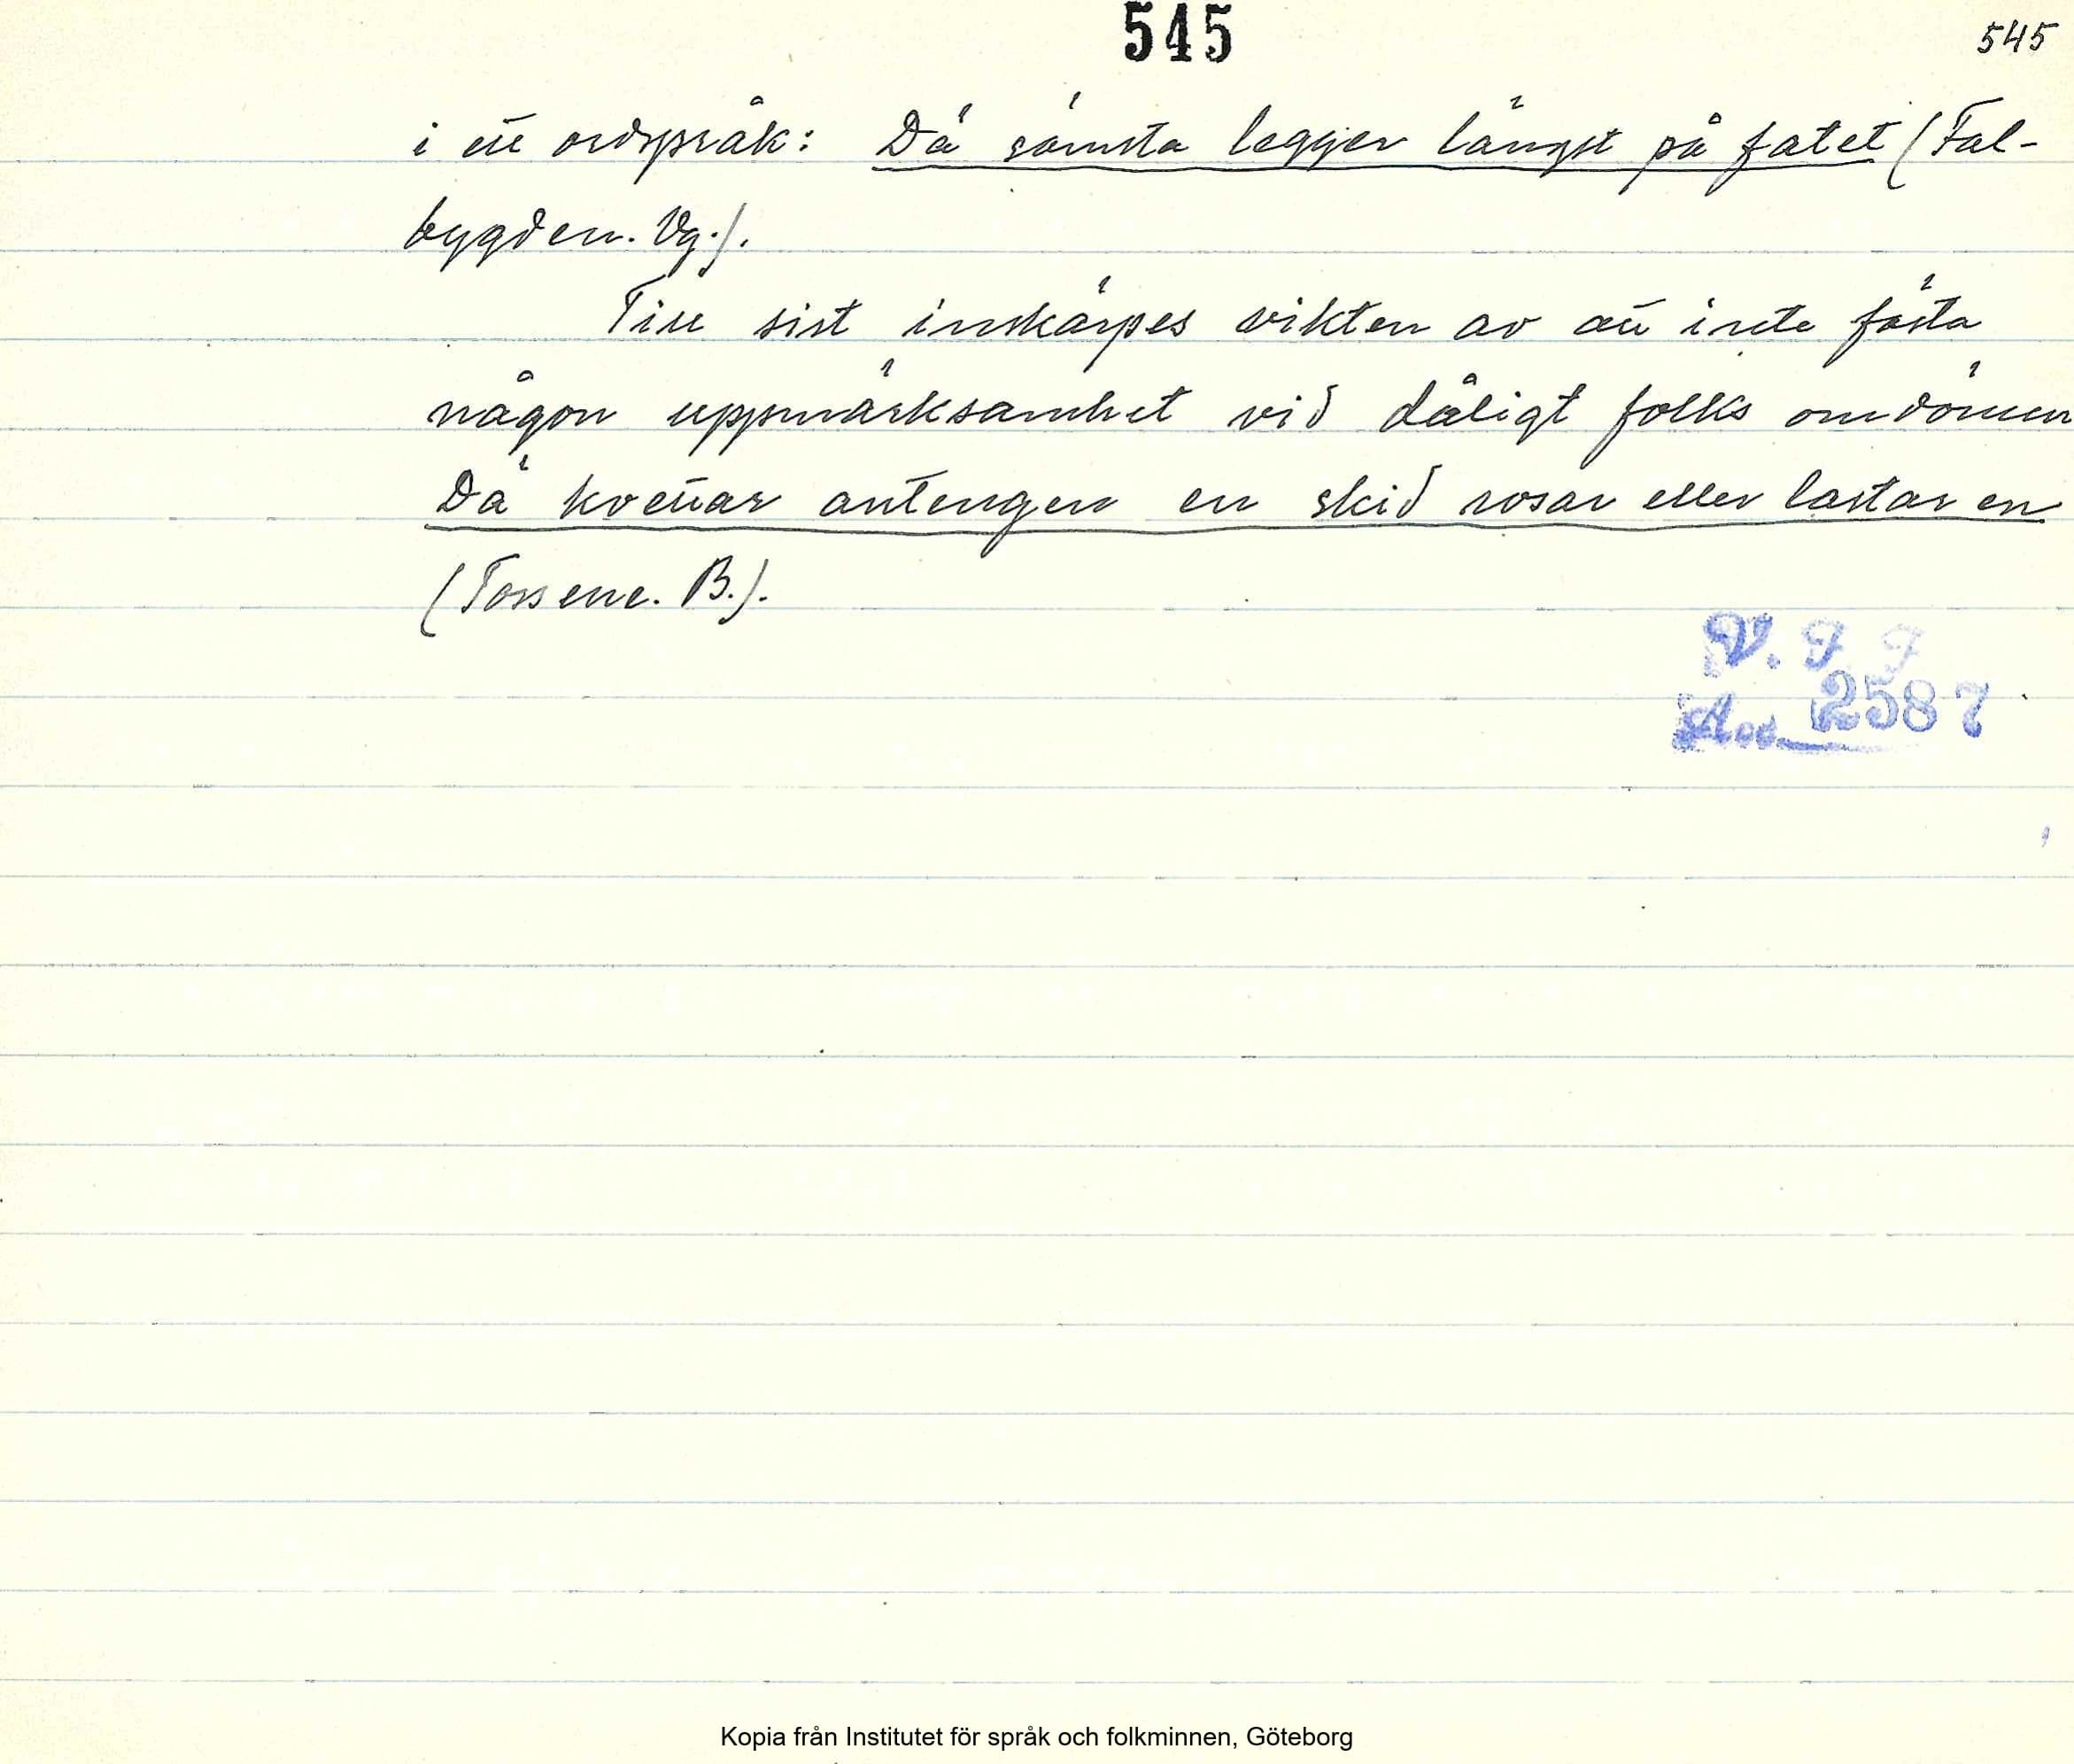 545
545
i ett ordspråk: Dä sämsta legger längst på fatet (Fal-
bygden. Vg.).
Till sist inskärpes vikten av att inte fästa
någon uppmärksamhet vid dåligt folks omdömen
Dä kvettar antengen en skid rosar eller lastar en
(Tossene. B.).
V. F. F.
Acc. 2587
Kopia från Institutet för språk och folkminnen, Göteborg